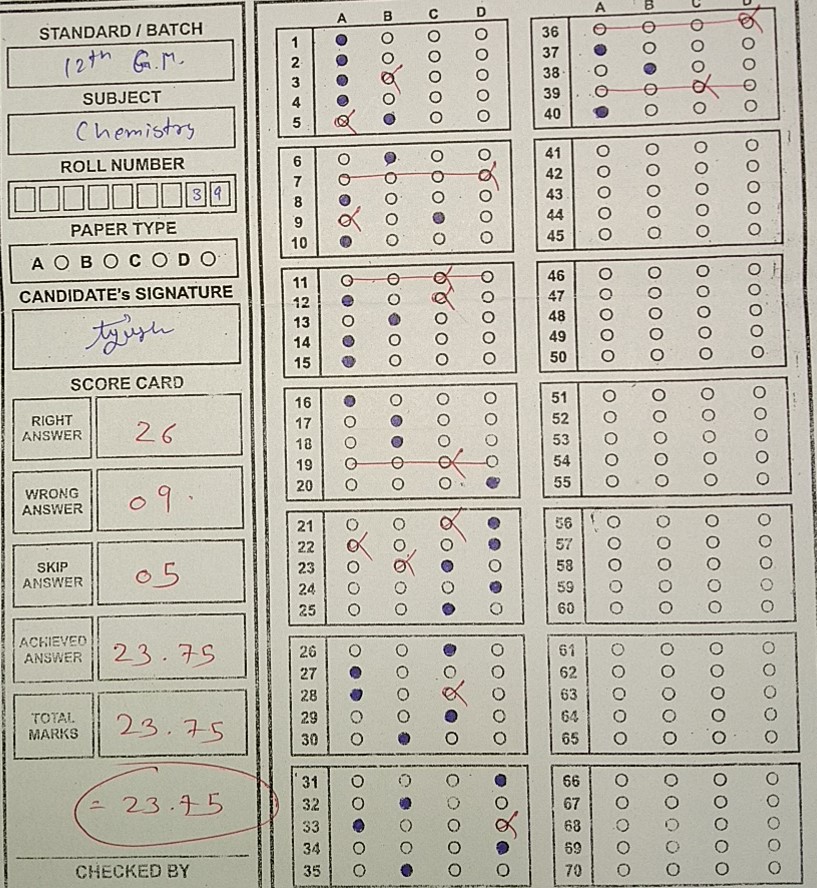 STANDARD / BATCH
12th G.M.
SUBJECT
Chemistry
ROLL NUMBER
39
PAPER TYPE
A B C D
CANDIDATE's SIGNATURE
SCORE CARD
RIGHT ANSWER 26
WRONG ANSWER 09.
SKIP ANSWER 05
ACHIEVED ANSWER 23.75
TOTAL MARKS 23.75
= 23.75
CHECKED BY
A B C D
1
2
3
4
5
6
7
8
9
10
11
12
13
14
15
16
17
18
19
20
21
22
23
24
25
26
27
28
29
30
31
32
33
34
35
A B C D
36
37
38
39
40
41
42
43
44
45
46
47
48
49
50
51
52
53
54
55
56
57
58
59
60
61
62
63
64
65
66
67
68
69
70